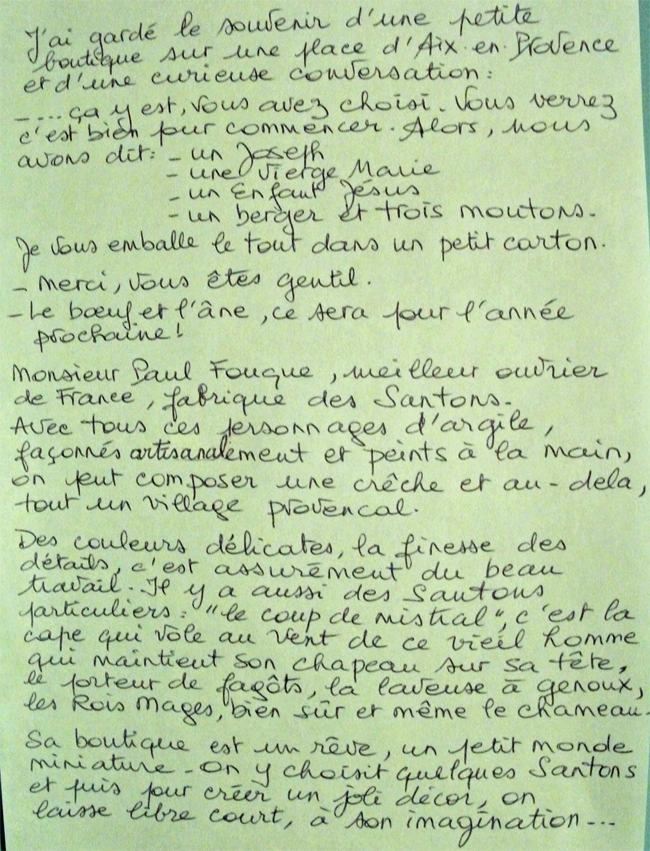 J'ai gardé le souvenir d'une petite
boutique sur une place d'Aix-en-Provence
et d'une curieuse conversation :
-.... ça y est, vous avez choisi. Vous verrez
c'est bien pour commencer. Alors, nous
avons dit : - un Joseph
- une Vierge Marie
- un Enfant Jésus
- un berger et trois moutons.
Je vous emballe le tout dans un petit carton.
- Merci, vous êtes gentil.
- Le bœuf et l'âne, ce sera pour l'année
prochaine !
Monsieur Paul Fouque, meilleur ouvrier
de France, fabrique des Santons.
Avec tous ces personnages d'argile,
façonnés artisanalement et peints à la main,
on peut composer une crêche et au-dela,
tout un village provencal.
Des couleurs délicates, la finesse des
détails, c'est assurément du beau
travail. Il y a aussi des Santons
particuliers : "le coup de mistral", c'est la
cape qui vole au vent de ce vieil homme
qui maintient son chapeau sur sa tête,
le porteur de fagôts, la laveuse à genoux,
les Rois Mages, bien sûr et même le chameau.
Sa boutique est un rêve, un petit monde
miniature - On y choisit quelques Santons
et puis pour créer un joli décor, on
laisse libre court, à son imagination...